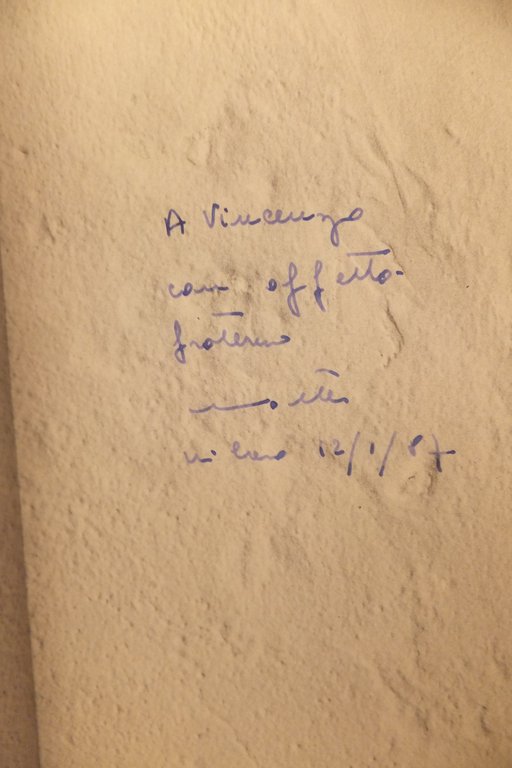 A Vincenzo
con affetto
fraterno
milano 12/1/87